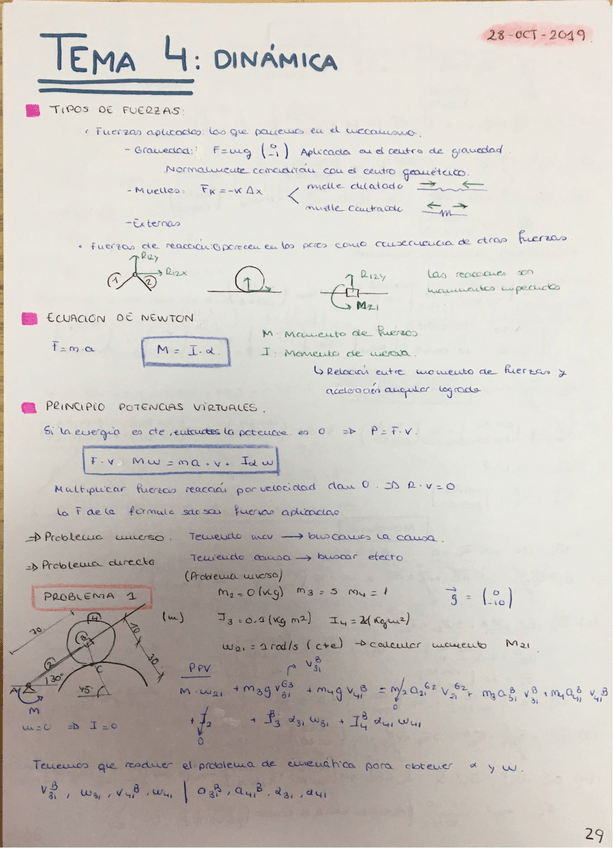 28-OCT-2019
TEMA 4: DINÁMICA
TIPOS DE FUERZAS:
· Fuerzas aplicadas las que ponemos en el mecanismo.
- Gravedad: F=mg (0 -1) Aplicada en el centro de gravedad.
Normalmente coincidirán con el centro geométrico.
- Muelles: Fk = -K Δx
muelle dilatado
muelle contraido
- Externas
· Fuerzas de reacción: aparecen en los pares como consecuencia de otras fuerzas
R12y
R12x
1 2
R12y
M21
Las reacciones son
movimientos impedidos
ECUACION DE NEWTON
F=m·a
M = I·α
M: Momento de fuerzas
I: Momento de inercia.
↳ Relación entre momento de fuerzas y
aceleración angular lograda
PRINCIPIO POTENCIAS VIRTUALES.
Si la energía es cte, entonces la potencia es 0 ⇒ P=F·V.
F·v + Mω = ma·v + Iαω
Multiplicar fuerzas reacción por velocidad dan 0. ⇒ R·V=0
La F de la formula solo son fuerzas aplicadas
⇒ Problema inverso. Teniendo mov → buscamos la causa.
⇒ Problema directo Teniendo causa → buscar efecto
(Problema inverso)
PROBLEMA 1
m2=0(kg) m3=5 m4=1
g = (0 -10)
(m)
J3=0.2(kg m2)
ω21=1rad/s (cte) → calcular momento M21.
70
4
3
2
10
30
A
30°
C
45°
M
m=0 ⇒ I=0
PPV
Tenemos que resolver el problema de cinemática para obtener α y ω.
v31B, ω31, v41B, ω41 | a31B, a41B, α31, α41
29